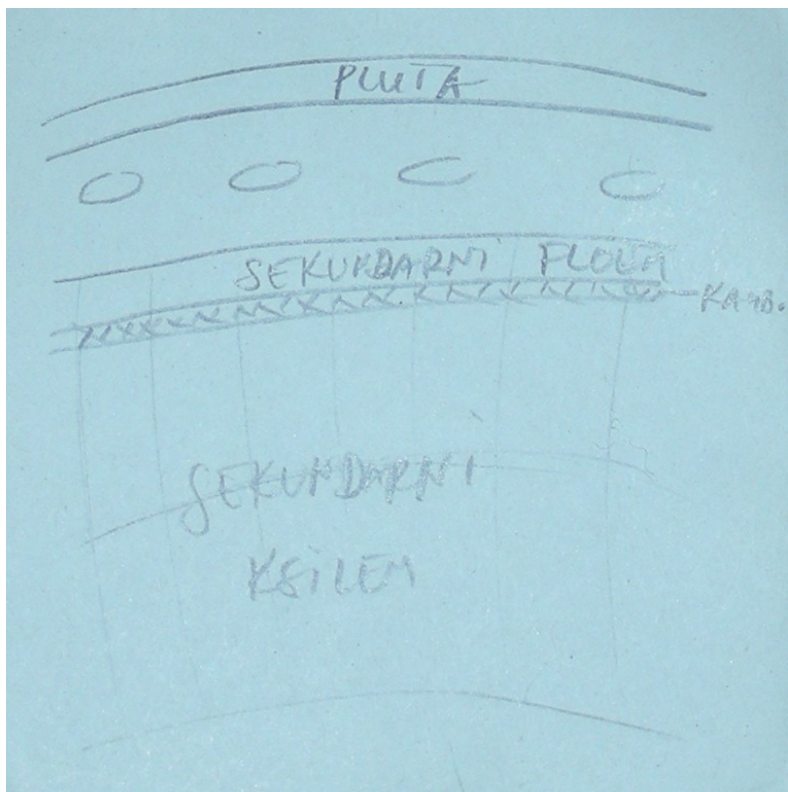 PLUTA
SEKUNDARNI FLOEM
KAMB.
SEKUNDARNI
KSILEM